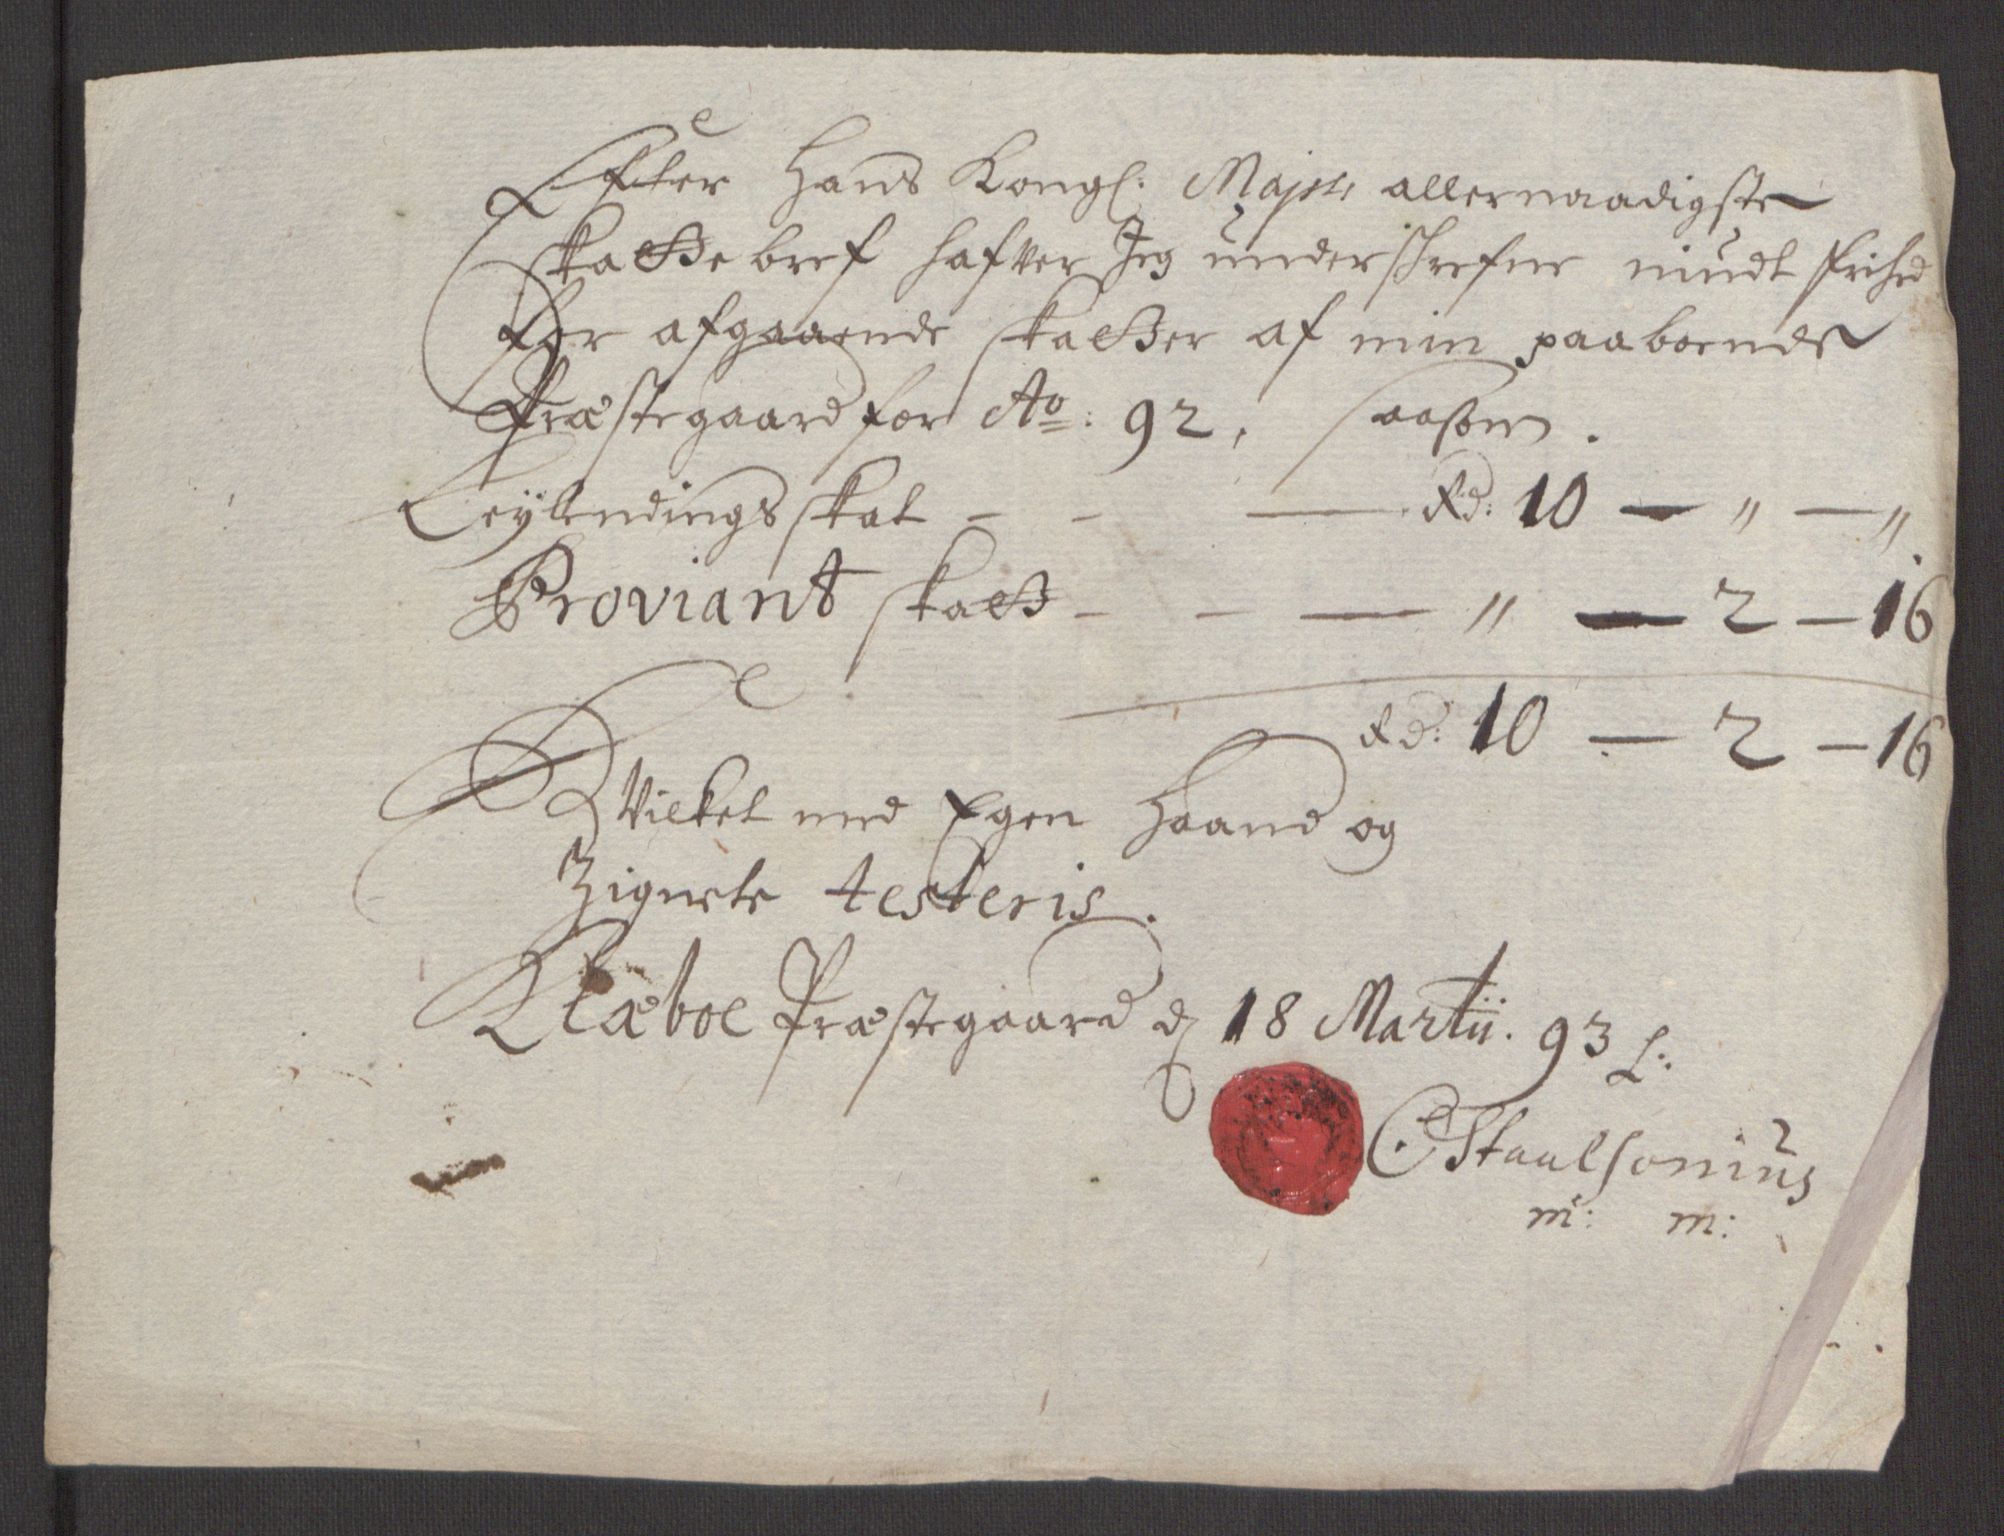 Efter Hans Kongl: Majsts allernaadigste
skatte bref hafver Jeg underskrefne niudt frihed
for afgaaende skatter af min paaboende
Præstegaard for Ao: 92, saasom.
Leylendings skat - - — Rd: 10 — " — "
Proviant skatt - - — " — 2 — 16
Rd: 10 — 2 — 16
Hvilket med Egen Haand og
Zignete testeris.
Klæboe Præstegaard d 18 Martii. 93
C Staalsonius
m: m: